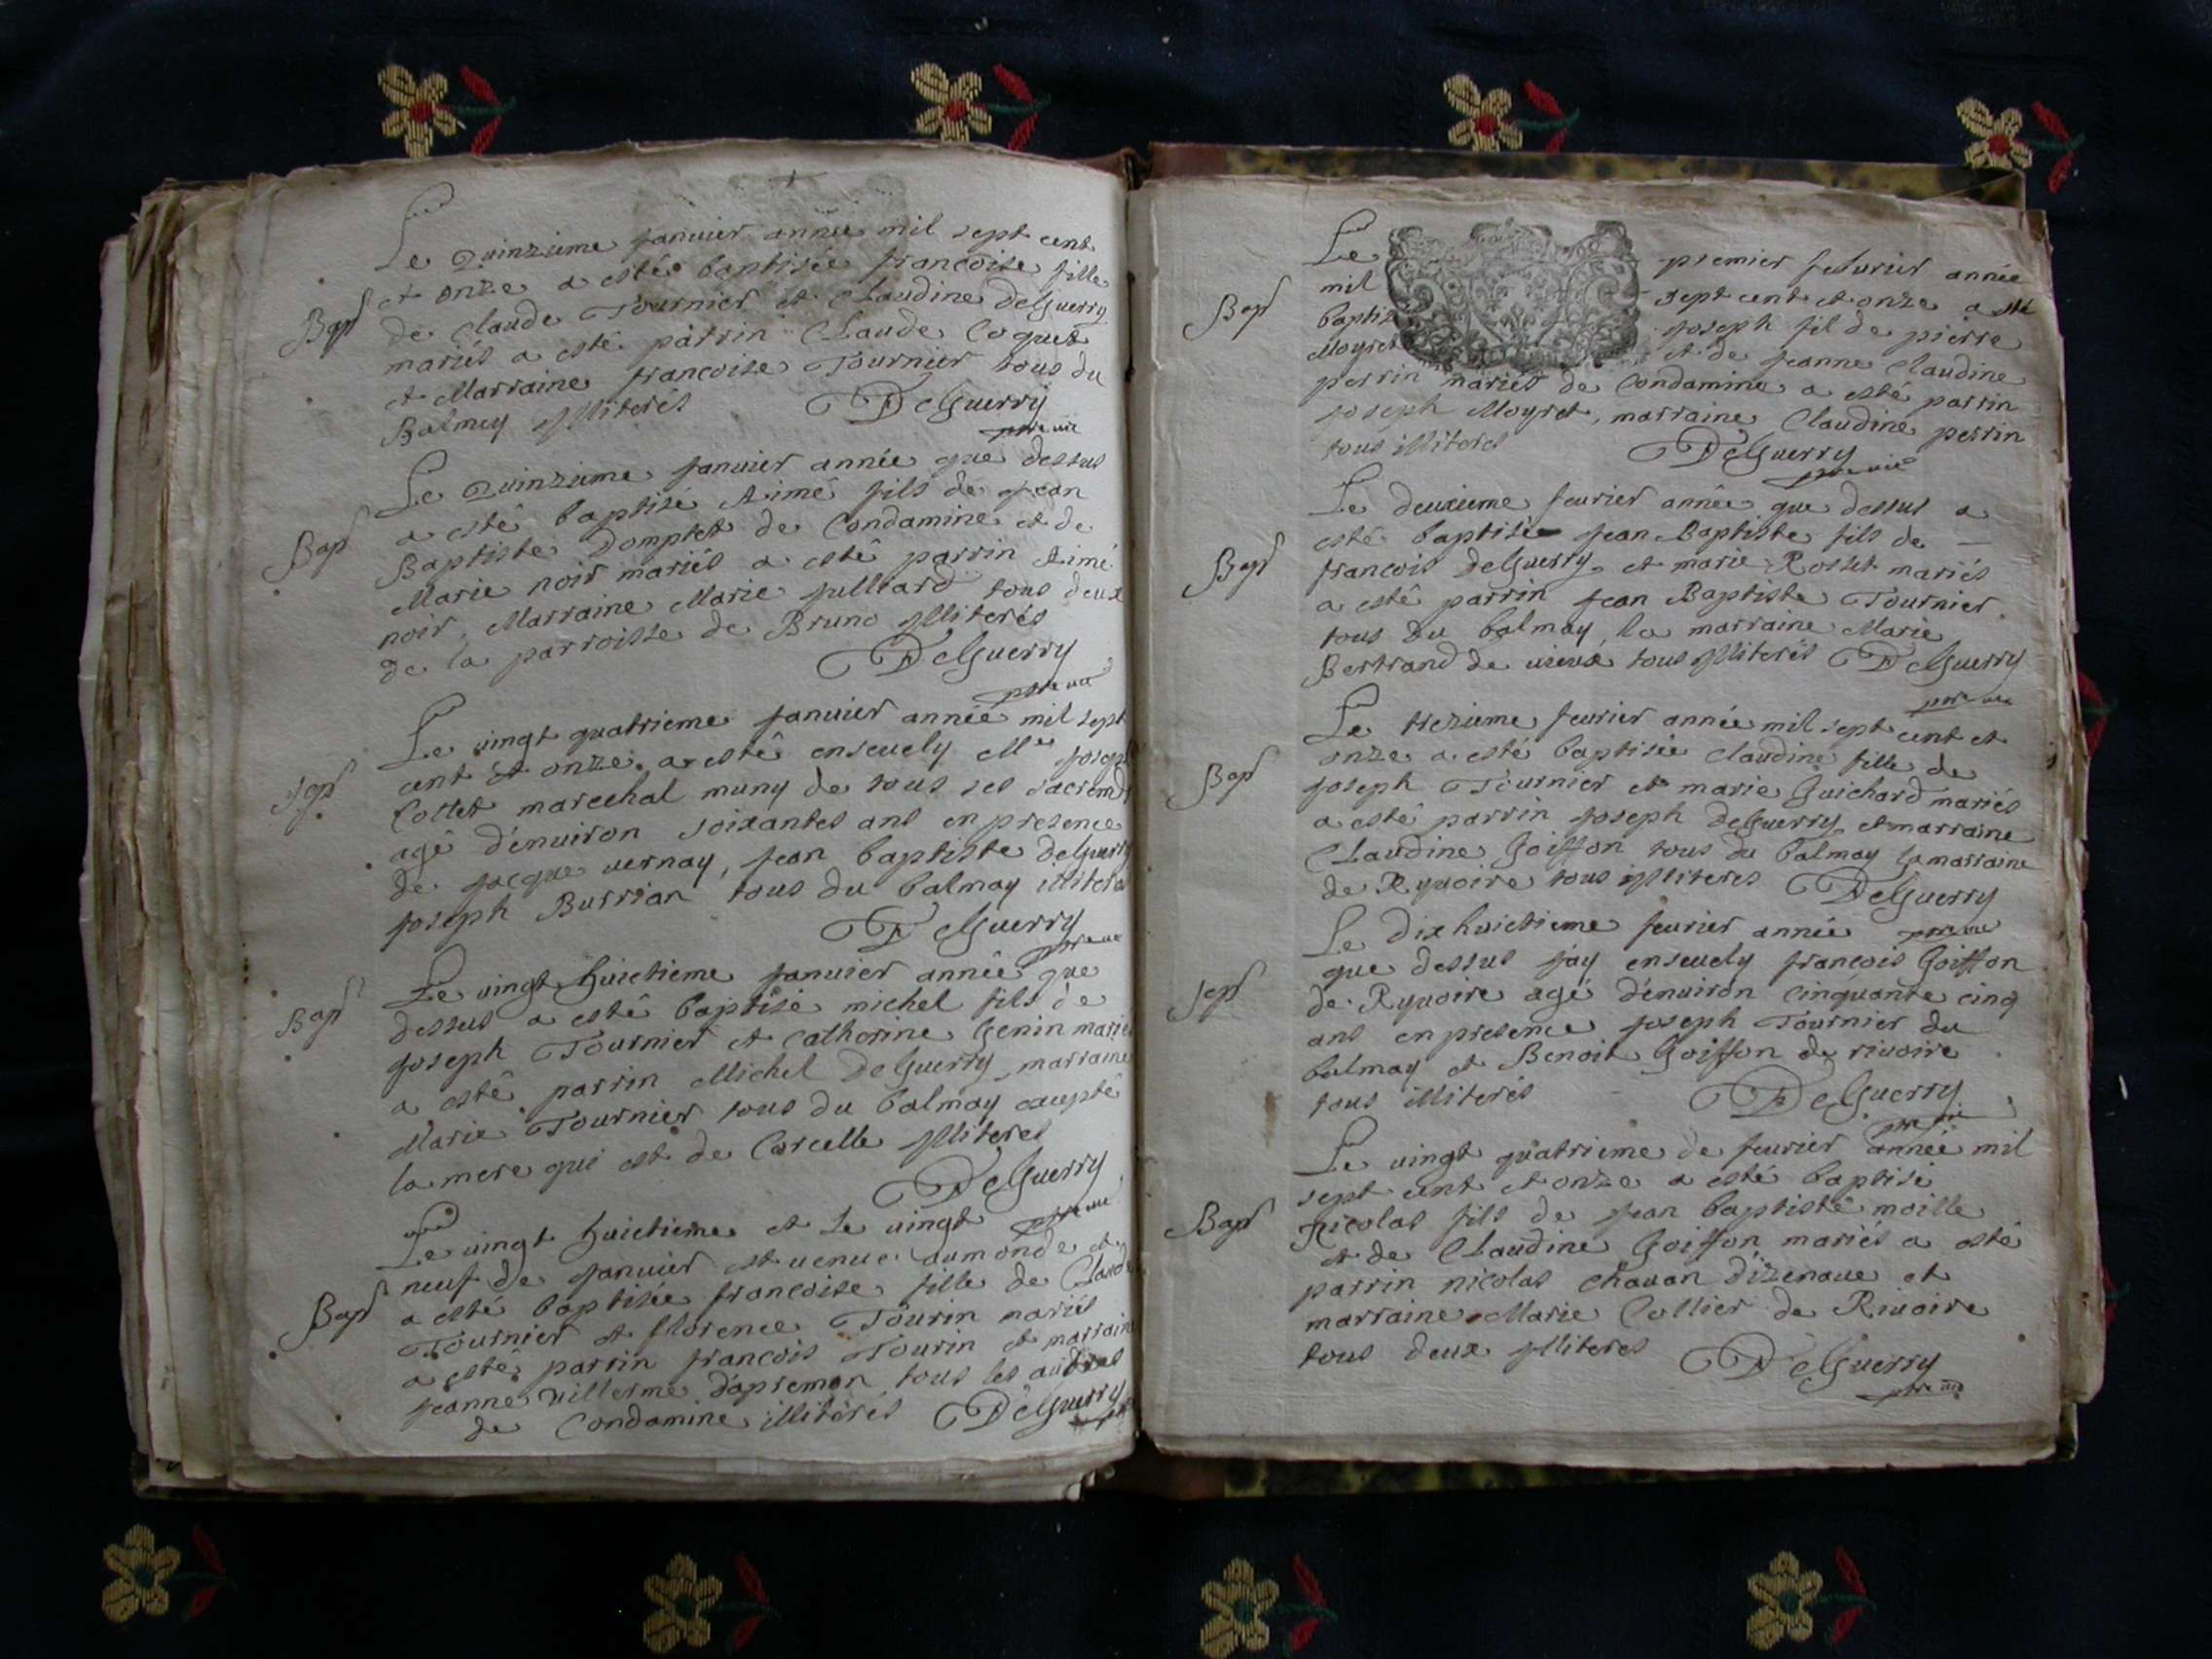 Le Quinzieme januier année mil sept cent
et onze a estée baptisée francoise fille
Bapt
de Claude Tournier et Claudine Delguerry
mariés a esté parrin Claude Coquet
et Marraine francoise Tournier tous du
Balmey illiterés Delguerry
Le Quinzieme januier année que dessus
a esté baptisé Aimé fils de jean
Bapt
Baptiste Domptet de Condamine et de
Marie noir mariés a esté parrin Aimé
noir, Marraine Marie julliard tous deux
de la parroisse de Bruno illiterés
Delguerry
Le uingt quatrieme januier année mil sept
cent et onze a esté enseuely joseph
Sep
Collet marechal muny de tous ses sacrem
agé d'enuiron soixantes ans en presence
de jacque uernay, jean baptiste delguerry
joseph Burrian tous du balmay illiteres
Delguerry
Le uingt huictieme januier année que
Bapt
dessus a esté baptisé michel fils de
joseph Tournier et Catherine Genin mariés
a esté parrin Michel Delguerry marraine
Marie Tournier tous du balmay excepté
la mere qui est de Corcelle illiteres
Delguerry
Le uingt huictieme et le uingt
neuf de januier est uenue au monde et
Bapt
a esté baptisée francoise fille de Claude
Tournier et florence Tourin mariés
a esté parrin francois Tourin et marraine
jeanne uillerme d'apremon tous les autres
de Condamine illiterés Delguerry
Le premier feburier année
mil sept cent et onze a esté
Bapt
baptisé joseph fil de pierre
Moyret et de jeanne Claudine
perrin mariés de Condamine a esté parrin
joseph Moyret, marraine Claudine perrin
tous illiteres Delguerry
Le deuxieme feurier année que dessus a
esté baptisé jean Baptiste fils de
Bapt
francois Delguerry et marie Rosset mariés
a esté parrin jean Baptiste Tournier
tous du balmay, la marraine Marie
Bertrand de uieux tous illiterés Delguerry
Le trezieme feurier année mil sept cent et
onze a esté baptisée Claudine fille de
Bapt
joseph Tournier et marie Guichard mariés
a esté parrin joseph Delguerry et marraine
Claudine Goiffon tous du balmay la marraine
de Ryuoire tous illiteres Delguerry
Le dixhuictieme feurier année
que dessus jay enseuely francois Goiffon
Sep
de Ryuoire agé d'enuiron cinquante cinq
ans en presence joseph Tournier du
balmay et Benoit Goiffon de riuoire
tous illiterés Delguerry
Le uingt quatrieme de feurier année mil
sept cent et onze a esté baptisé
Bapt
Nicolas fils de jean baptiste moille
et de Claudine Goiffon mariés a esté
parrin nicolas chauan dizenaue et
marraine Marie Collier de Riuoire
tous deux illiteres Delguerry